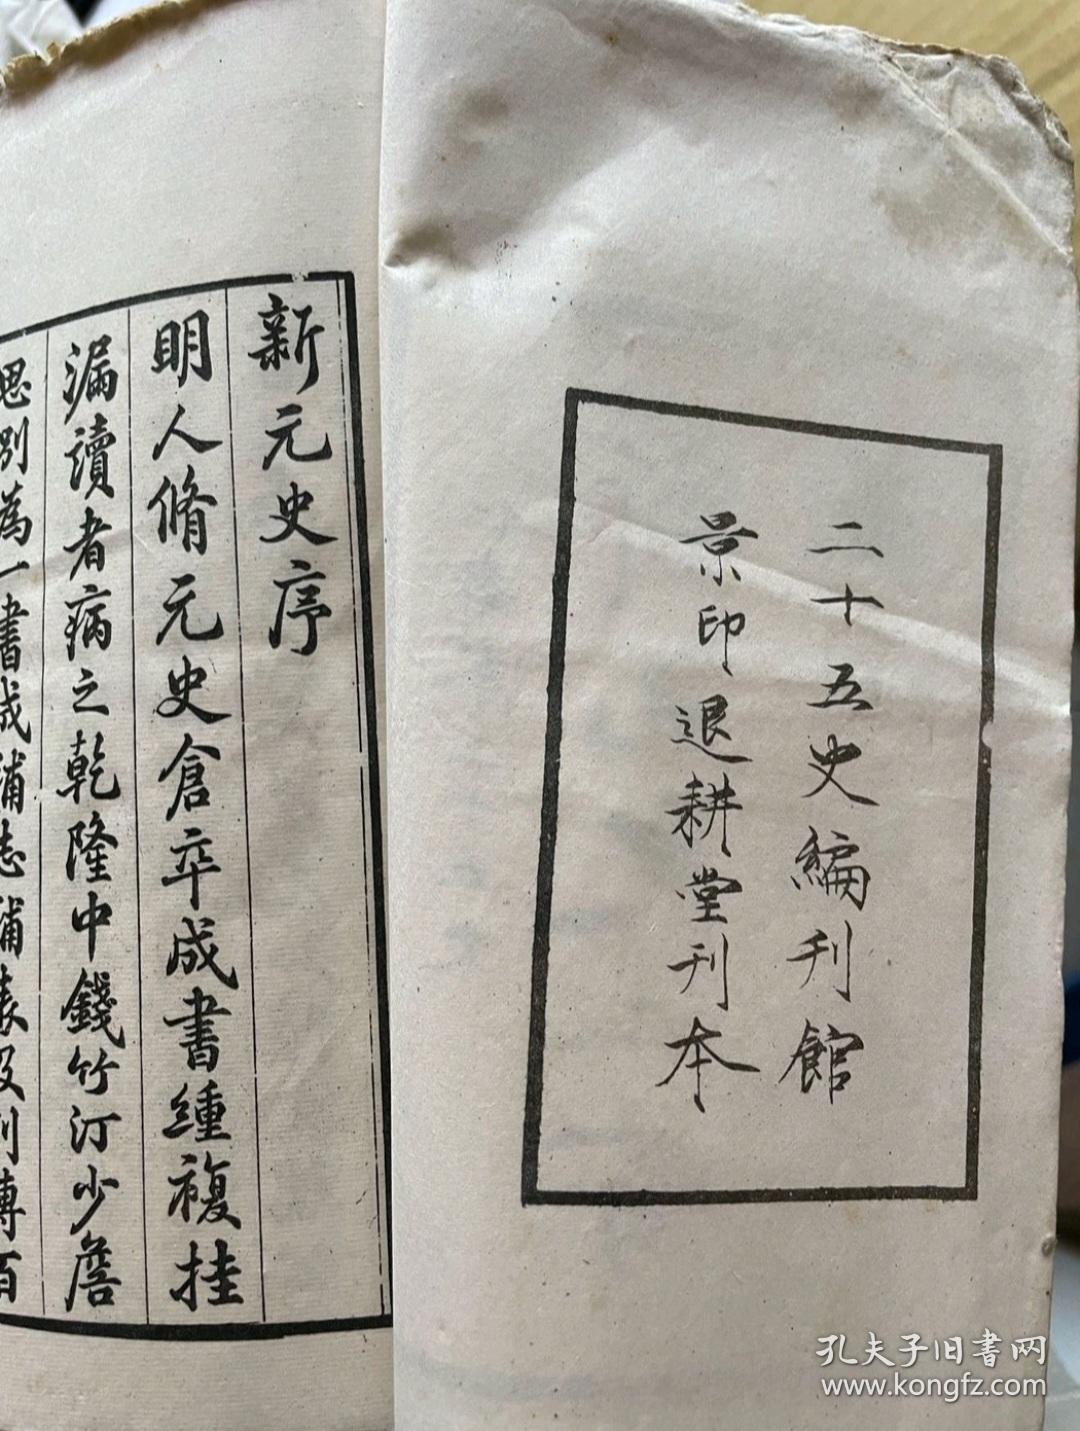 二十五史編刊館
景印退耕堂刊本
新元史序
明人脩元史倉卒成書緟複挂
漏讀者病之乾隆中錢竹汀少詹
思別為一書成補志補表及列傳百
孔夫子旧書网
www.kongfz.com